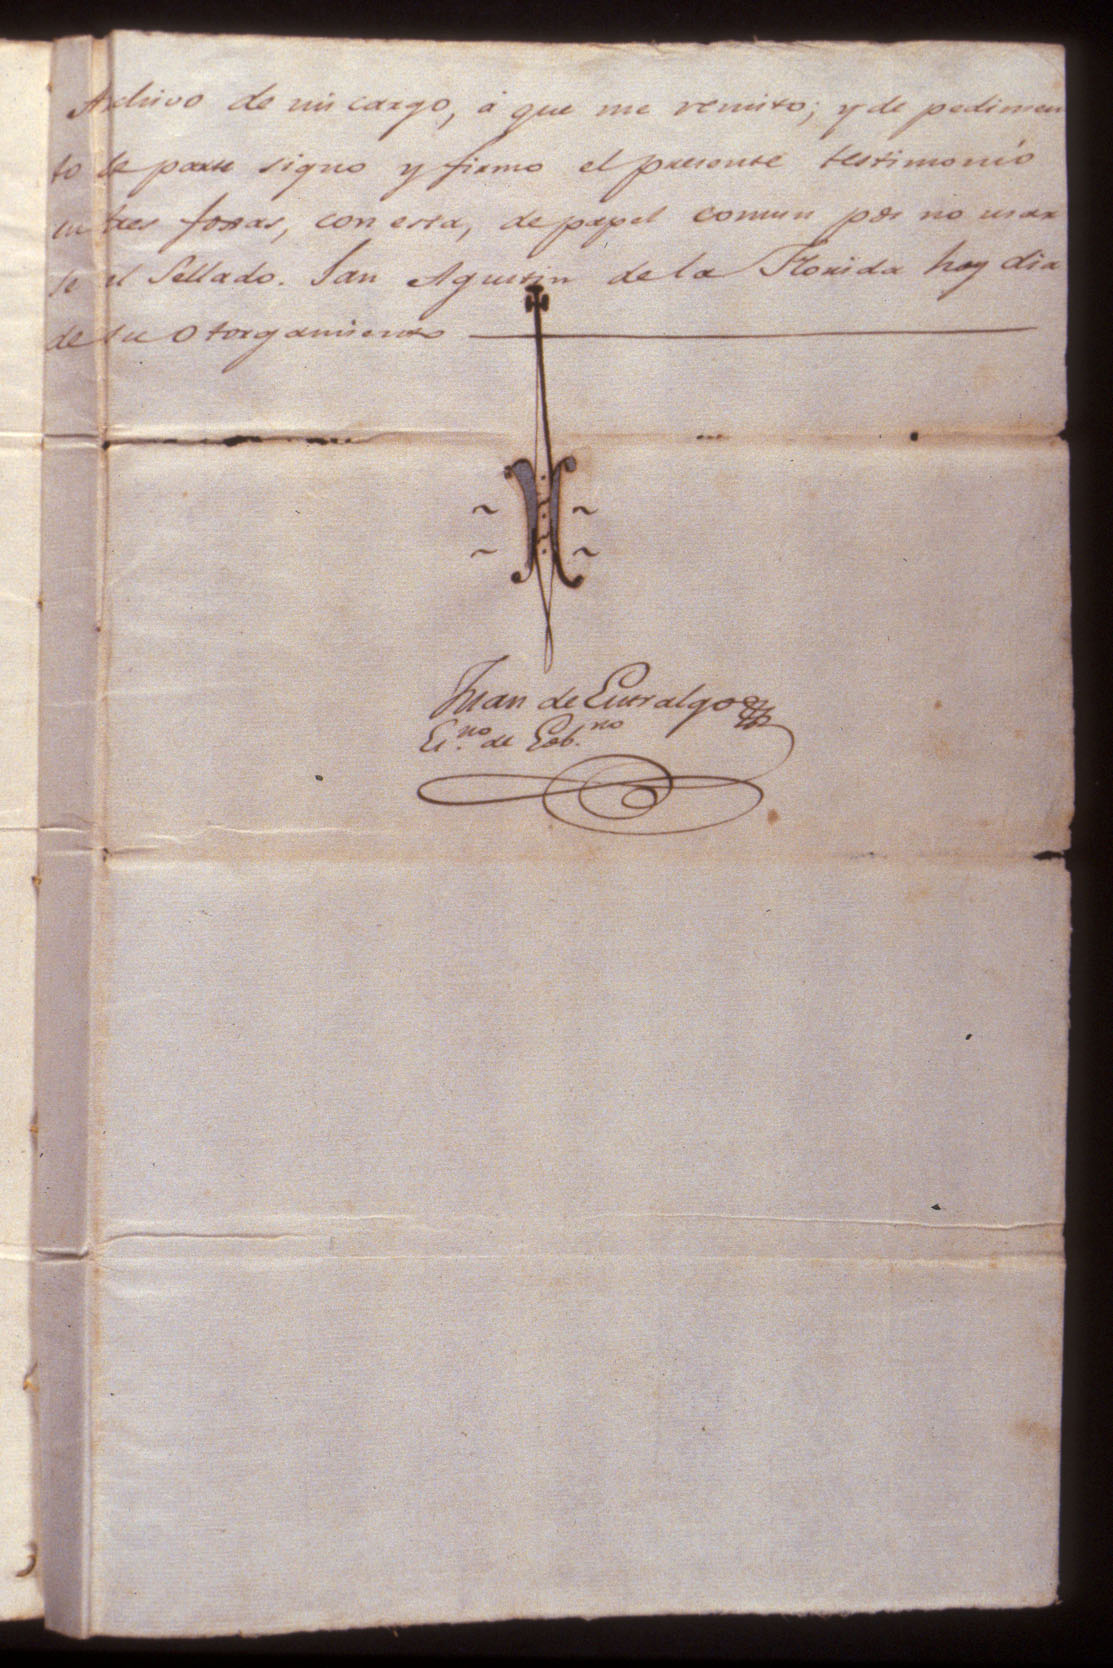 Archivo de mi cargo, á que me remito; y de pedimen
to de parte signo y firmo el presente testimonio
en tres foxas, con esta, de papel comun por no usar
se el Sellado. San Agustin de la Florida hoy dia
de su Otorgamiento
Juan de Entralgo
Es.no de Gob.no